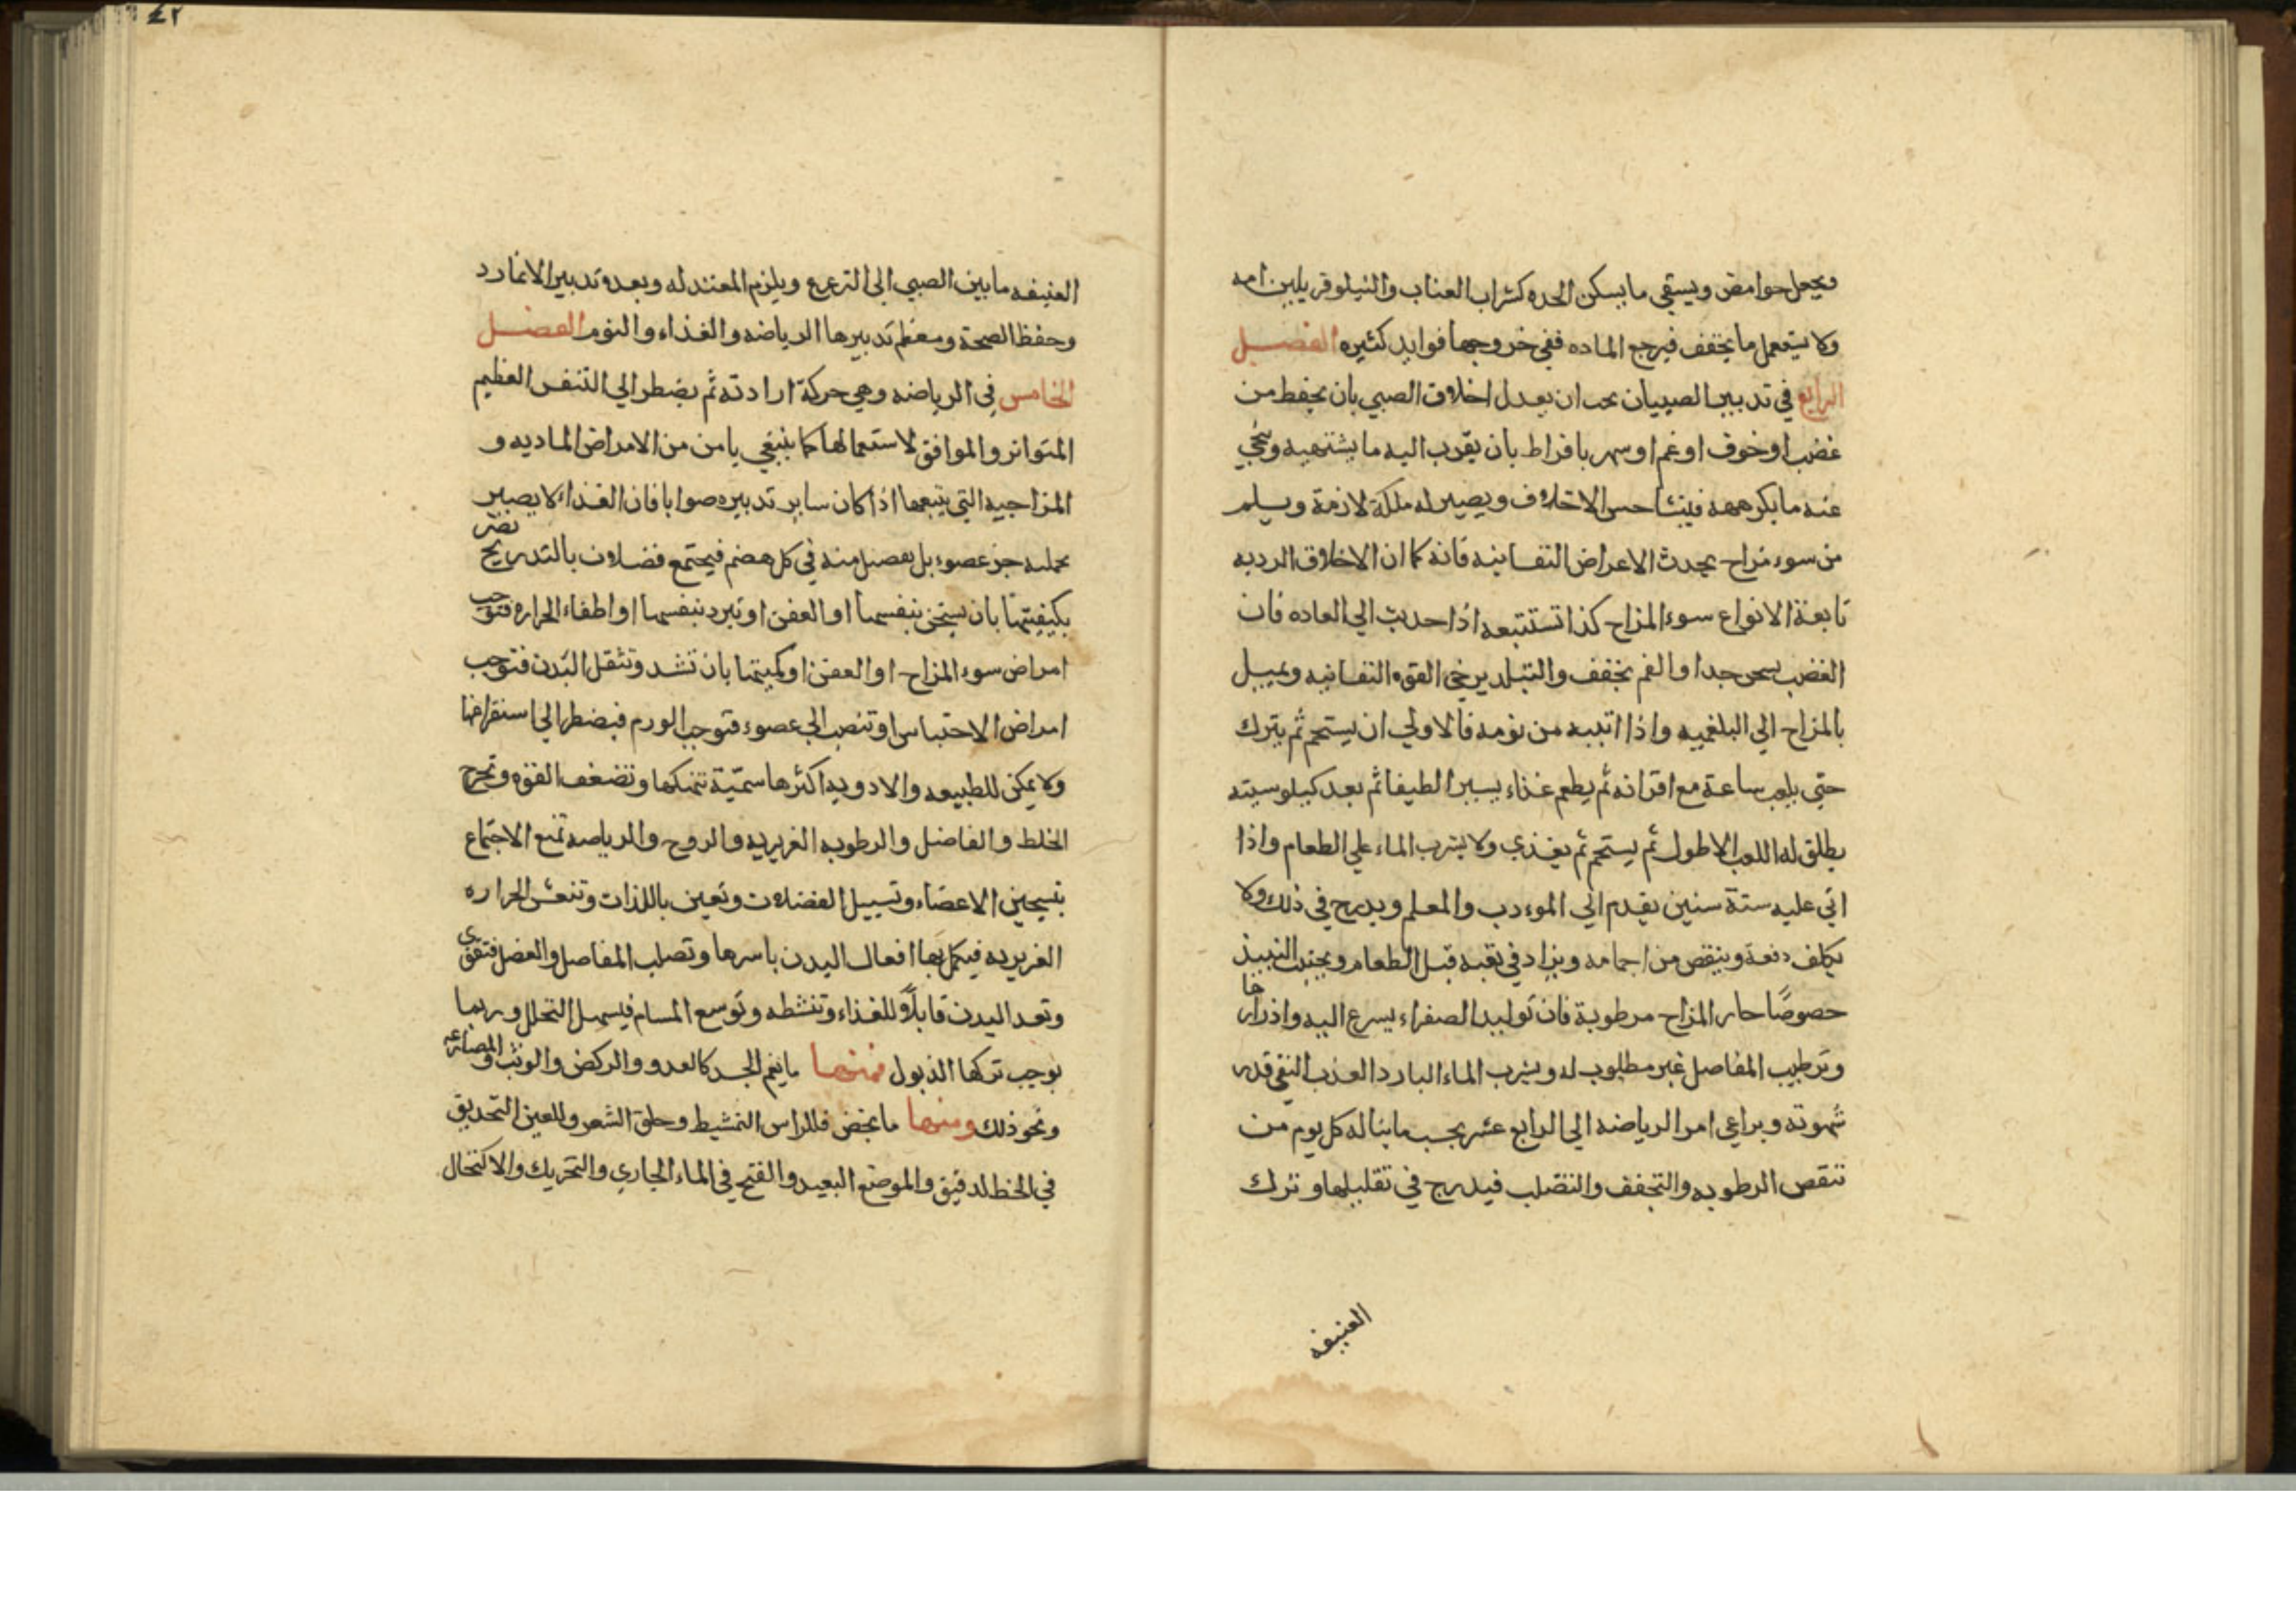 ويجعل حوامض ويسقي ما يسكن الحده كشراب العناب والنيلوفر بلبن امه
ولا يستعمل ما يجفف فيرجع الماده ففي خروجها فوايد كثيره الفصل
الرابع في تدبير الصبيان يجب ان يعدل اخلاق الصبي بان يحفظ من
غضب او خوف او غم او سهر بافراط بان يقرب اليه ما يشتهيه وينحي
عنه ما يكرهه فينشا حسن الاخلاق ويصير له ملكة لازمة ويسلم
من سوء مزاج يحدث الاعراض النفسانيه فانه كما ان الاخلاق الرديه
تابعة الانواع سوء المزاج كذا تستتبعه اذا حدثت الي العاده فان
الغضب يسخن جدا والغم يجفف والتبلد يرخي القوه النفسانيه ويميل
بالمزاج الي البلغميه واذا انتبه من نومه فالاولي ان يستحم ثم يترك
حتي يلعب ساعة مع اقرانه ثم يطعم غذاء يسيرا لطيفا ثم بعد كيلوسيته
يطلق له اللعب الاطول ثم يستحم ثم يغذي ولا يشرب الماء علي الطعام واذا
اتي عليه ستة سنين يقدم الي المودب والمعلم ويدرج في ذلك ولا
يكلف دفعة وينقص من اجمامه ويزاد في تعبه قبل الطعام ويجنب النبيذ
خصوصًا حار المزاج مرطوبة فان توليد الصفراء يسرع اليه وادرار
وترطيب المفاصل غير مطلوب له ويشرب الماء البارد العذب النقي قدر
شهوته ويراعي امر الرياضه الي الرابع عشر بحسب ما يناله كل يوم من
تنقص الرطوبه والتجفف والتصلب فيدرج في تقليلها وترك
العنيفه
٤٢
العنيفه ما بين الصبي الي الترعرع ويلزم المعتدله وبعده تدبير الانماء
وحفظ الصحة ومعظم تدبيرها الرياضه والغذاء والنوم الفصل
الخامس في الرياضه وهي حركة ارادته ثم يضطر الي التنفس العظيم
المتواتر والموافق لاستعمالها كما ينبغي يامن من الامراض الماديه و
المزاجيه التي يتبعها اذا كان ساير تدبيره صوابا فان الغذاء لا يصير
بجملته جزء عضوء بل يفضل منه في كل هضم فيجتمع فضلات بالتدريج تضر
بكيفيتها بان يسخن بنفسها او العفن او تبرد بنفسها او اطفاء الحراره فتوجب
امراض سوء المزاج او العفن او كميتها بان تشد وتثقل البدن فتوجب
امراض الاحتباس او تنصب الي عضوء فتوجب الورم فيضطر الي استفراغها
ولا يمكن للطبيعه والادويه اكثرها سمّية تنهكها وتضعف القوه وتخرج
الخلط والفاضل والرطوبه الغريزيه والروح والرياضه تمنع الاجتماع
بتسخين الاعضاء وتسييل الفضلات وتعين باللذات وتنعش الحراره
الغريزيه فيكمل بها افعال البدن باسرها وتصلب المفاصل والعضل فتقوي
وتعد البدن قابلاً للغذاء وتنشطه وتوسع المسام فيسهل التحلل وربما
يوجب تركها الذبول فمنها ما يعم الجسد كالعدو والركض والوثب والمصارعه
ونحو ذلك ومنها ما يخص فللراس التمشيط وحلق الشعر وللعين التحديق
في الخط الدقيق والموضع البعيد والفتح في الماء الجاري والتحريك والاكتحال